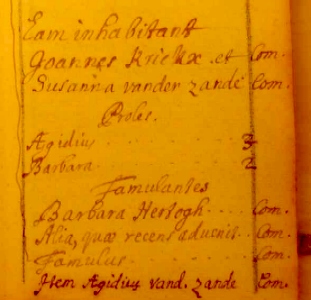 Eam inhabitant
Joannes Krickx et Com.
Susanna vander zande Com.
Proles.
Ægidius 3
Barbara 2
Famulantes
Barbara Hertogh Com.
Alia, quæ recens advenit Com.
Famulus Com.
Item Ægidius vand. zande Com.